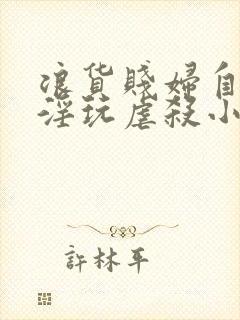 浪货賤婦自
淫玩虐殺小
許林平